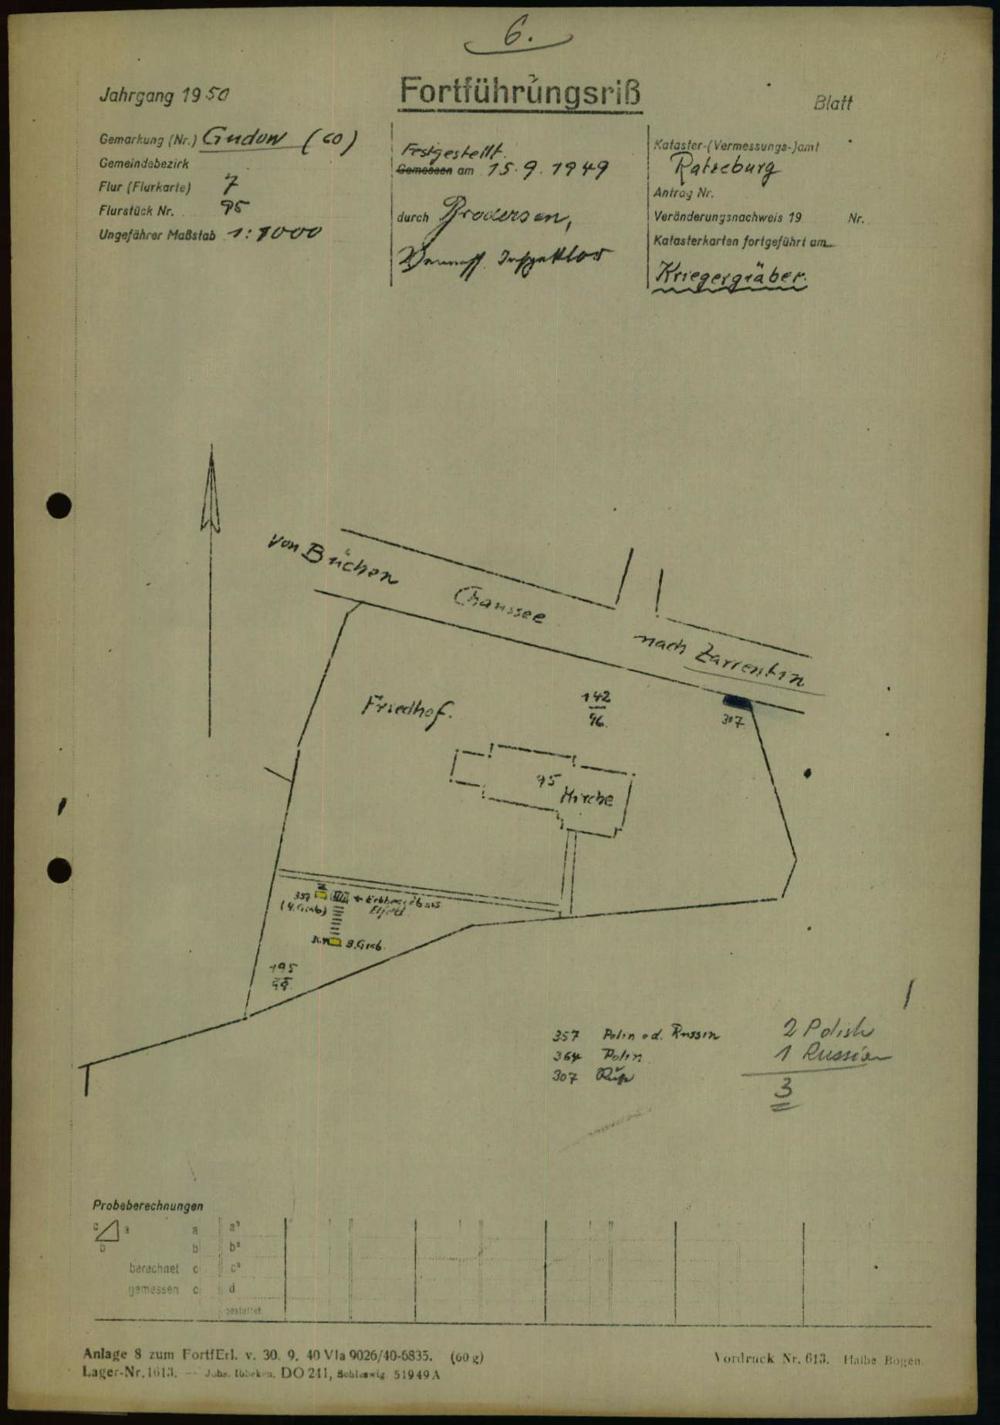 6.
Jahrgang 1950
Fortführungsriß
Blatt
Gemarkung (Nr.) Gudow (60)
Gemeindebezirk
Flur (Flurkarte) 7
Flurstück Nr. 95
Ungefährer Maßstab 1:1000
Festgestellt
Gemessen am 15.9.1949
durch Brodersen,
Kataster-(Vermessungs-)amt
Ratzeburg
Antrag Nr.
Veränderungsnachweis 19 Nr.
Katasterkarten fortgeführt am
Kriegergräber.
von Büchen
Chaussee
nach Zarrentin
Friedhof.
142
96
307
95 Kirche
357
(4. Grab)
364 3. Grab.
195
357 Polin od. Russin
364 Polin
307 Russe
2 Polish
1 Russian
3
Probeberechnungen
c a a a²
b b b²
berechnet c c²
gemessen c d
gestattet
Anlage 8 zum FortfErl. v. 30. 9. 40 VIa 9026/40-6835. (60 g)
Lager-Nr. 1613. — Johs. Ibbeken, DO 241, Schleswig 51949 A
Vordruck Nr. 613. Halbe Bogen.